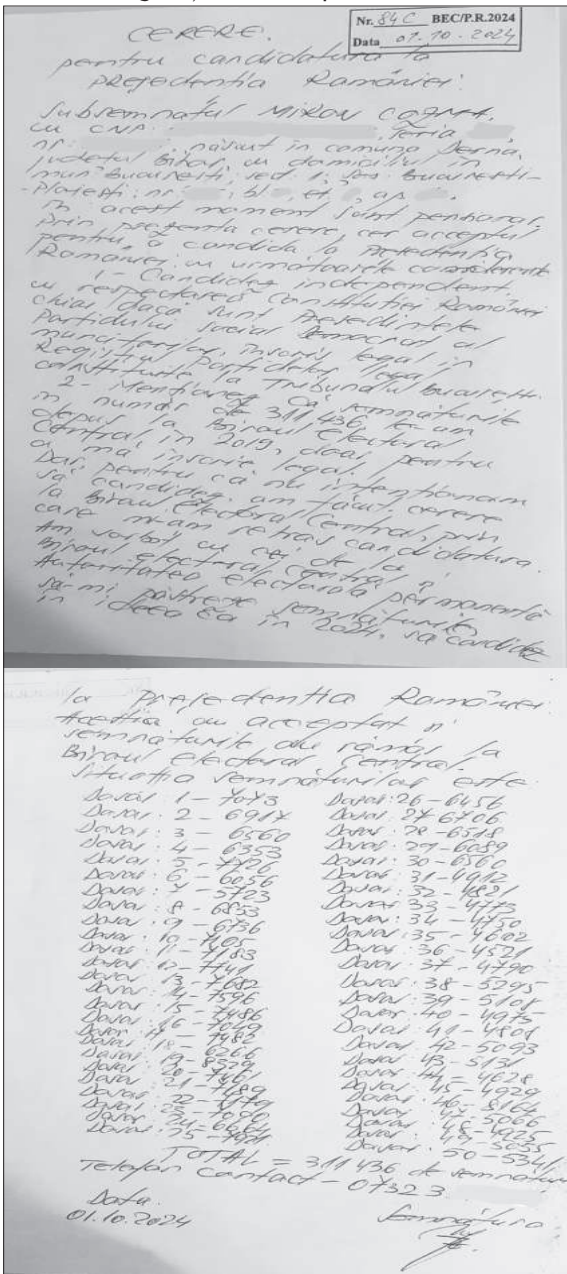 Nr. 84 C BEC/P.R.2024
Data 01-10-2024
CERERE.
pentru candidatura la
președenția României.
Subsemnatul MIRON COZMA,
cu CNP. seria
nr. născut în comuna Derna,
județul Bihor, cu domiciliu în
mun București, sed. 1, șos București-
-Ploiești, nr. bl. et. ap.
În acest moment sunt penbara
prin prezenta cerere, cer acceptul
pentru a candida la Președenția
României cu următoarele considerente
1- Candidez independent
cu respectarea Constituției României
chiar dacă sunt Președintele
Partidului Social Democrat al
muncitorilor, înscris legal în
Registrul Partidelor legal
constituite la Tribunalul București.
2- Menționez că semnăturile
în număr de 311 436, le-am
depus la Biroul Electoral
Central, în 2019, doar pentru
a mă înscrie legal.
Dar pentru că nu intenționam
să candidez, am făcut cerere
la Biroul Electoral Central, prin
care mi-am retras candidatura.
Am vorbit cu cei de la
Biroul electoral central și
Autoritatea electorală permanentă
să-mi păstreze semnăturile
în ideea că în 2024, să candidez
la Președenția României
Aceștia au acceptat și
semnăturile au rămas la
Biroul electoral Central.
Situația semnăturilor este
Dosar 1 - 7073
Dosar: 2 - 6917
Dosar: 3 - 6560
Dosar: 4 - 6353
Dosar: 5 - 7726
Dosar: 6 - 6056
Dosar: 7 - 5723
Dosar: 8 - 6833
Dosar: 9 - 6736
Dosar: 10 - 7105
Dosar: 11 - 7183
Dosar: 12 - 7741
Dosar: 13 - 7682
Dosar: 14 - 7596
Dosar: 15 - 7486
Dosar: 16 - 7049
Dosar: 17 - 7482
Dosar: 18 - 6266
Dosar: 19 - 8529
Dosar: 20 -
Dosar: 21 -
Dosar: 22 -
Dosar: 23 -
Dosar: 24 -
Dosar: 25 -
Dosar: 26 - 6456
Dosar: 27 6706
Dosar: 28 - 6518
Dosar: 29 - 6089
Dosar: 30 - 6560
Dosar: 31 - 4912
Dosar: 32 - 4821
Dosar: 33 - 4773
Dosar: 34 - 4750
Dosar: 35 - 4602
Dosar: 36 - 4521
Dosar: 37 - 4790
Dosar: 38 - 5295
Dosar: 39 - 5108
Dosar: 40 - 4975
Dosar: 41 - 4801
Dosar: 42 - 5093
Dosar: 43 - 5131
Dosar: 44 - 4628
Dosar: 45 - 4929
Dosar: 46 - 8164
Dosar: 47 - 5066
Dosar: 48 - 4925
Dosar: 49 -
Dosar: 50 - 5341
TOTAL = 311 436 de semnături
Telefon Contact - 07323
Data.
01.10.2024
Semnătura